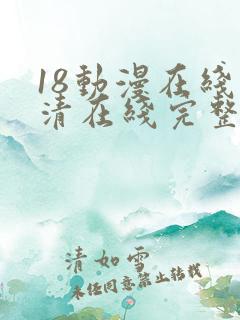 18動漫在綫
清在綫完整
清如雪
未经同意禁止转载